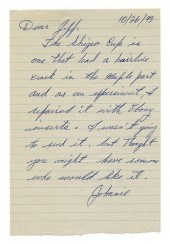 10/26/93
Dear Jeff,
The Shipoo Cup is
one that had a hairline
crack in the Maple part
and as an experiment, I
repaired it with Ebony
inserts. I wasn't going
to send it, but thought
you might have someone
who would like it.
Johanne